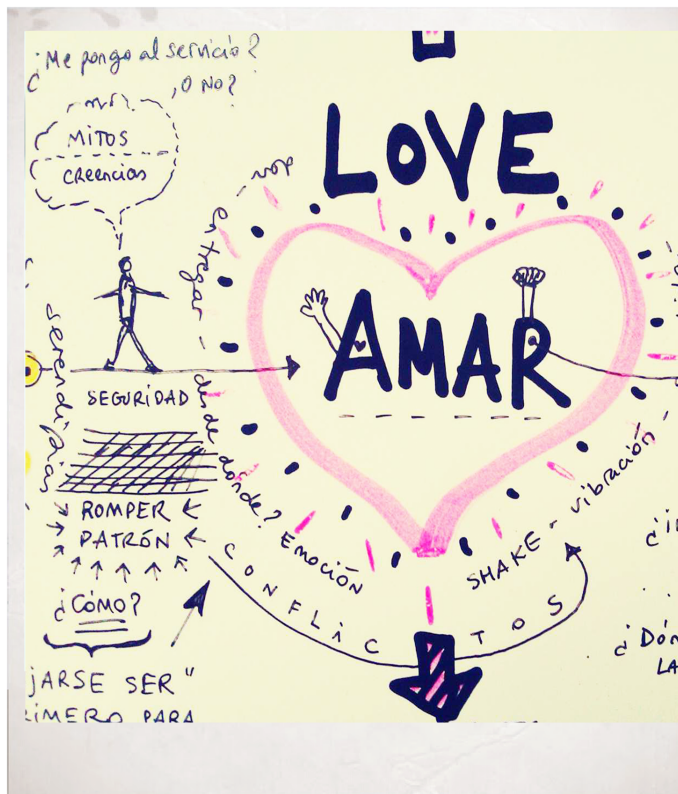 ¿Me pongo al servicio?
, O NO?
MITOS
creencias
LOVE
AMAR
serendipias
SEGURIDAD
ROMPER
PATRÓN
¿CÓMO?
JARSE SER"
RIMERO PARA
don - entregar - desde dónde? Emoción
SHAKE - vibración -
CONFLICTOS
¿Dón
LA